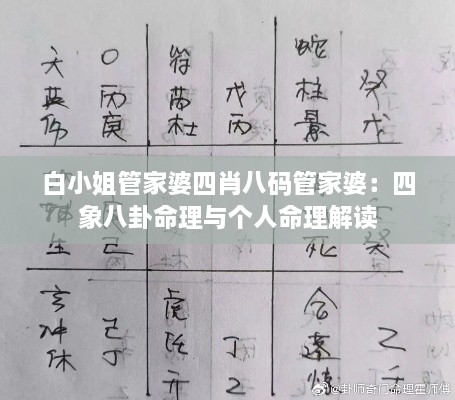 天 〇 符 蛇
英 丙 芮 戊 柱 癸
伤 庚 杜 丙 景 戊
白小姐管家婆四肖八码管家婆：四
象八卦命理与个人命理解读
生 己 死
玄 虎 合
冲 己 丁 蓬 乙
休 丁 开 乙
@卦师奇门命理霍师傅